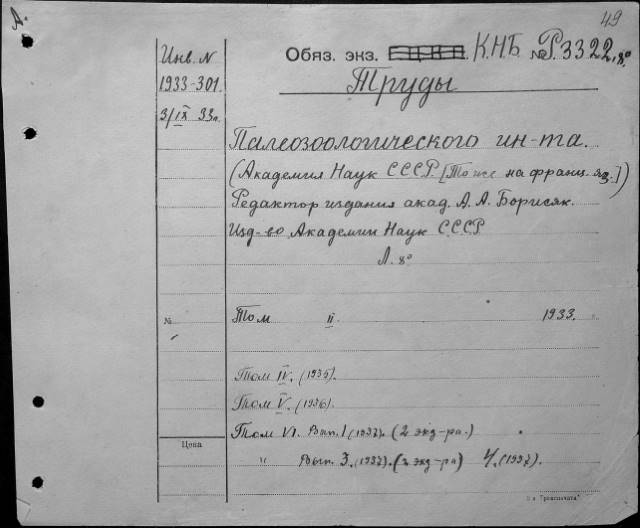 А.
49
Инв. N
1933-301.
3/IX 33г.
Обяз. экз. ЕЦКЛ. К.Н.Б. № Р.3322,8°
Труды
Палеозоологического ин-та.
(Академия Наук СССР. [То же на франц. яз.])
Редактор издания акад. А. А. Борисяк.
Изд-во Академии Наук СССР
Л. 8°
№ Том II. 1933.
Том IV. (1935).
Том V. (1936).
Том VI. Вып. 1 (1937). (2 экз-ра.)
Цена
" Вып. 3. (1937). (2 экз-ра) 4. (1937).